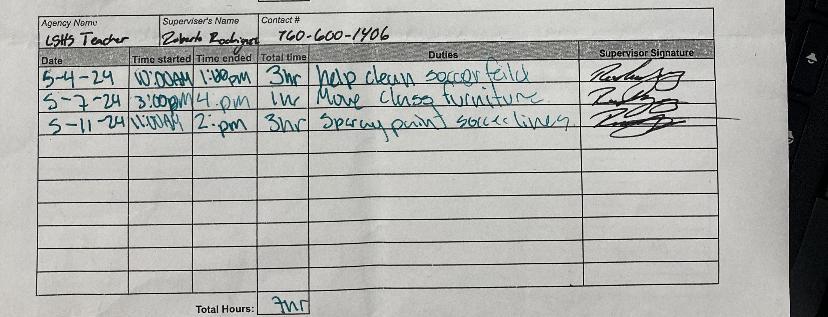 Agency Name Supervisor's Name Contact #
LSHS Teacher Roberto Rodriguez 760-600-1406
Date Time started Time ended Total time Duties Supervisor Signature
5-4-24 10:00AM 1:00pm 3hr help clean soccer feild
5-7-24 3:00pm 4:pm 1hr Move class furniture
5-11-24 11:00AM 2:pm 3hr Sparay paint soccer lines
Total Hours: 7hr